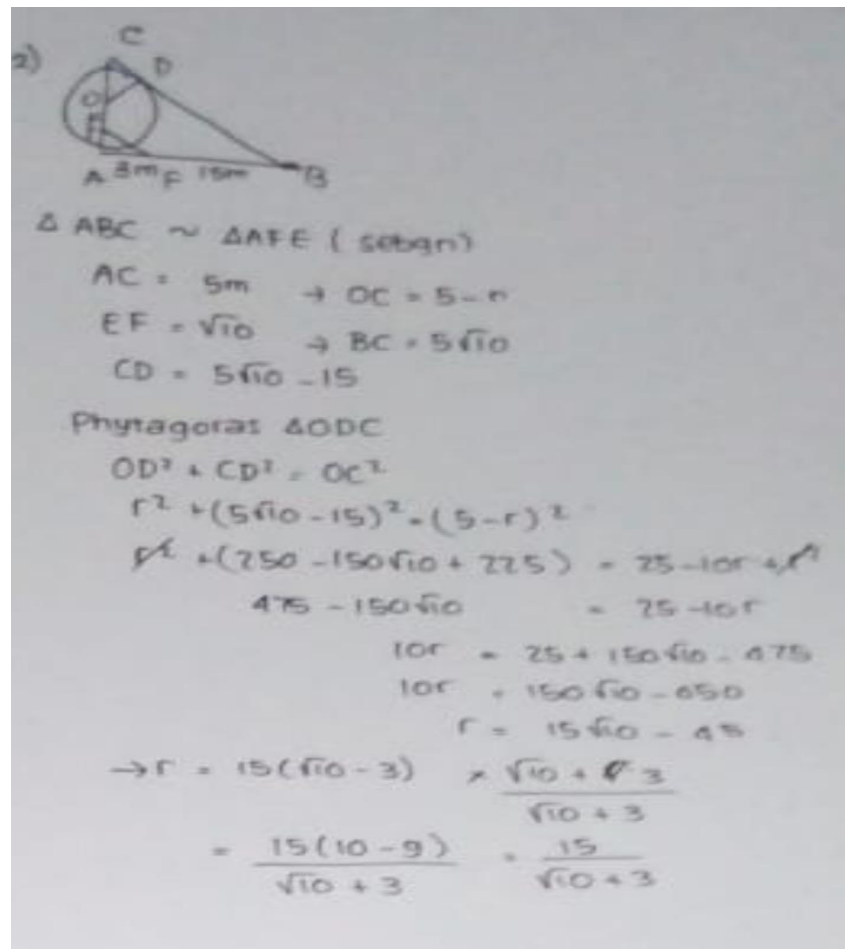 2)
C
D
O
E
A 3m F 15m B
Δ ABC ~ ΔAFE ( sebgn)
AC = 5m → OC = 5-r
EF = √10 → BC = 5√10
CD = 5√10 - 15
Phytagoras ΔODC
OD² + CD² = OC²
r² + (5√10 - 15)² = (5-r)²
r² + (250 - 150√10 + 225) = 25 - 10r + r²
475 - 150√10 = 25 - 10r
10r = 25 + 150√10 - 475
10r = 150√10 - 450
r = 15√10 - 45
→ r = 15(√10 - 3) × √10 + 3 / √10 + 3
= 15(10 - 9) / √10 + 3 = 15 / √10 + 3